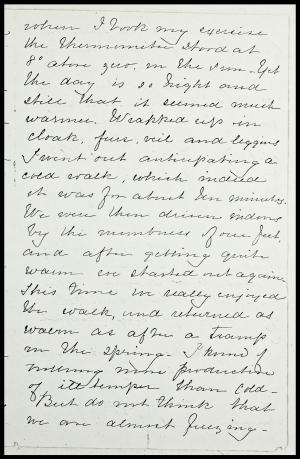 when I took my exercise
the thermometer stood at
8° above zero, in the sun. Yet
the day is so bright and
still that it seemed much
warmer. Wrapped up in
cloak, fur, veil and leggins
I went out anticipating a
cold walk, which indeed
it was for about ten minutes.
We were then driven indoors
by the numbness of our feet
and after getting quite
warm we started out again.
This time we really enjoyed
the walk, and returned as
warm as after a tramp
in the spring. I know of
nothing more productive
of ill temper than cold -
But do not think that
we are almost freezing -